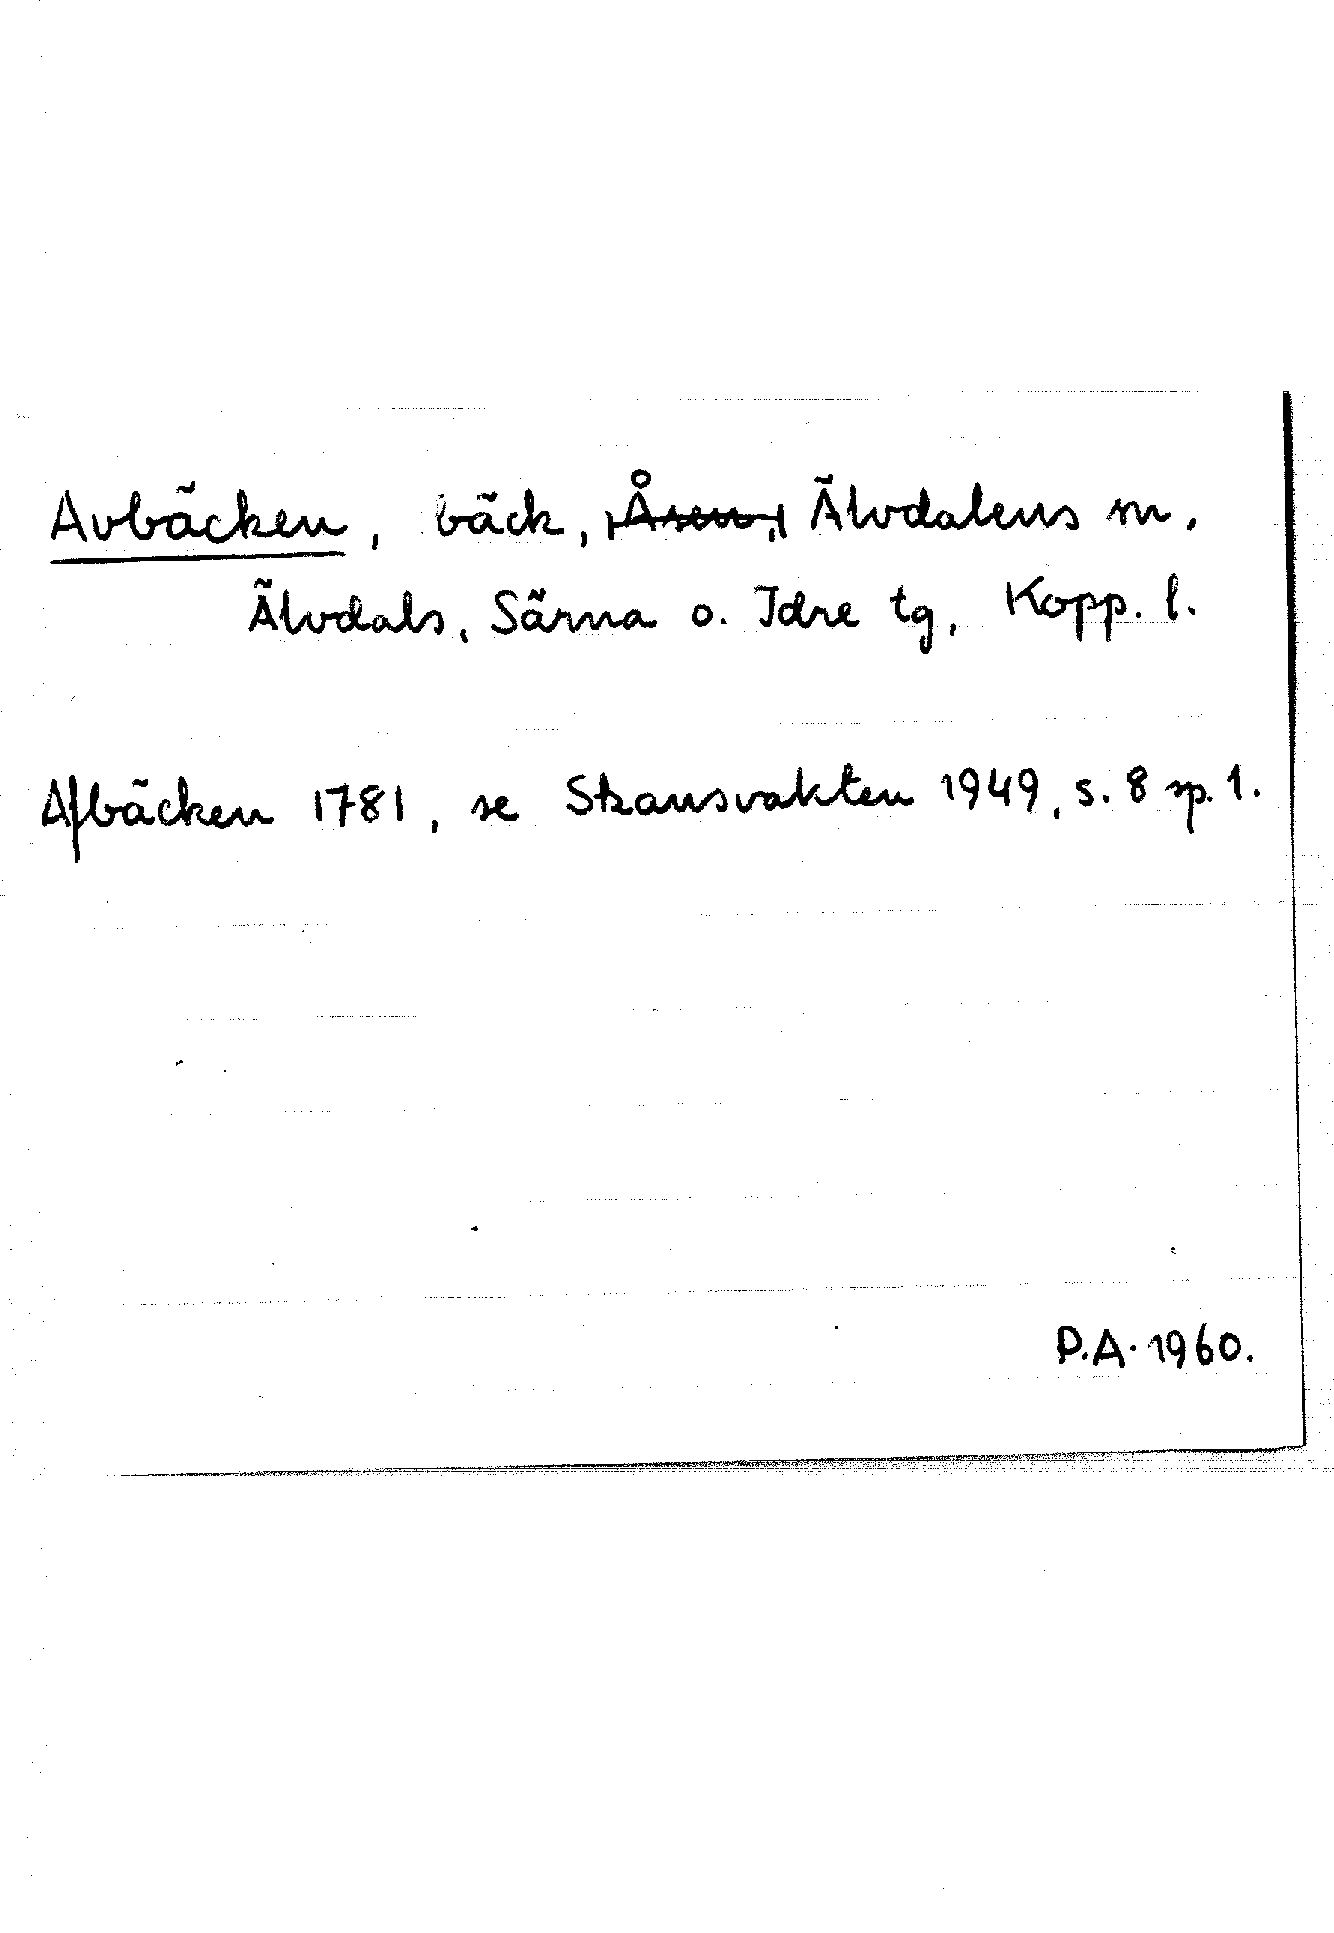 Avbäcken, bäck, Åsen, Älvdalens m,
Älvdals, Särna o. Idre tg, Kopp. l.
Afbäcken 1781, se Skansvakten 1949, s. 8 sp. 1.
P.A. 1960.